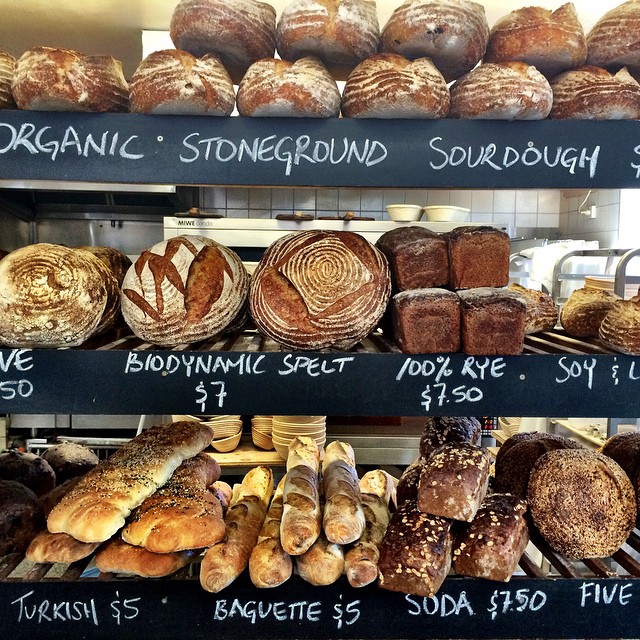 ORGANIC STONEGROUND SOURDOUGH $
MIWE condo
VE BIODYNAMIC SPELT 100% RYE SOY & L
50 $7 $7.50
TURKISH $5 BAGUETTE $5 SODA $7.50 FIVE